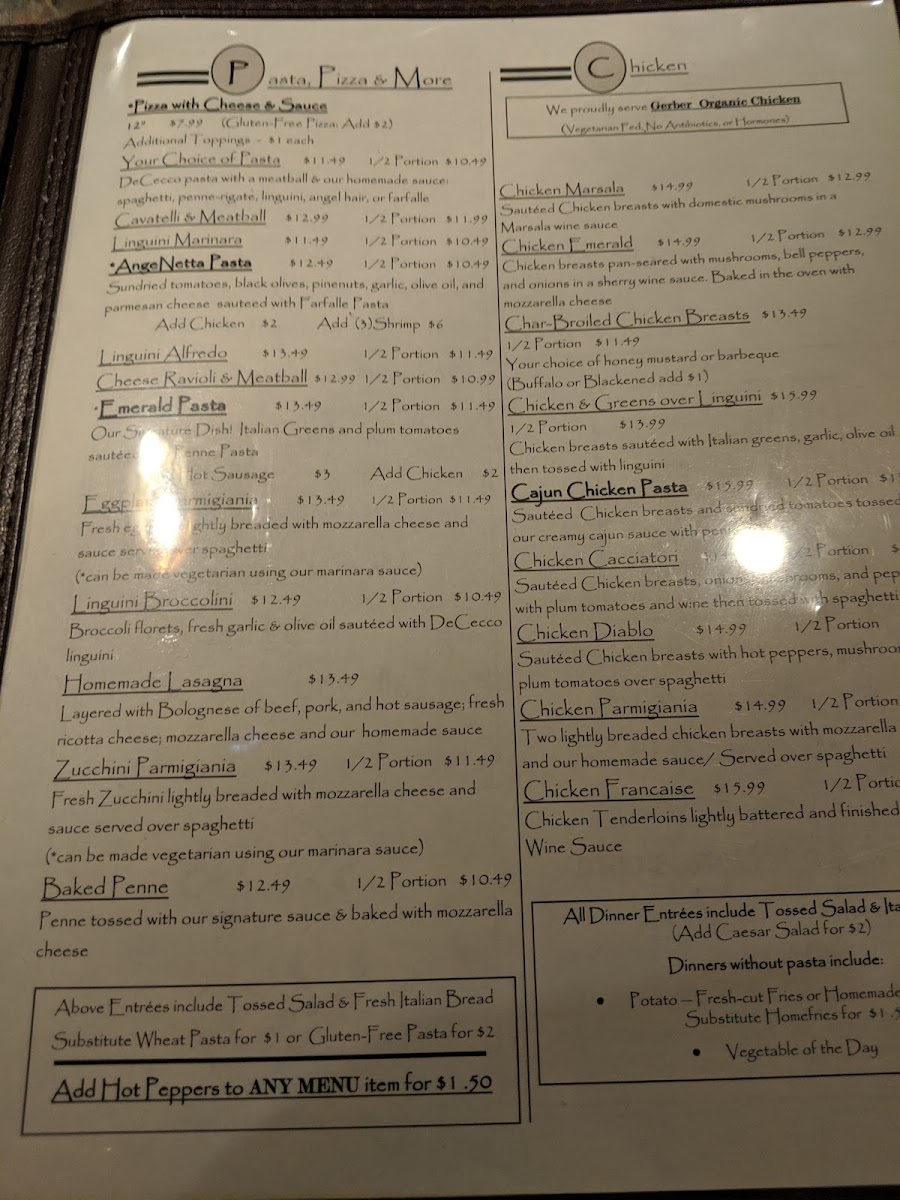 Pasta, Pizza & More
*Pizza with Cheese & Sauce
12" $7.99 (Gluten-Free Pizza: Add $2)
Additional Toppings - $1 each
Your Choice of Pasta $11.49 1/2 Portion $10.49
DeCecco pasta with a meatball & our homemade sauce:
spaghetti, penne-rigate, linguini, angel hair, or farfalle
Cavatelli & Meatball $12.99 1/2 Portion $11.99
Linguini Marinara $11.49 1/2 Portion $10.49
*AngeNetta Pasta $12.49 1/2 Portion $10.49
Sundried tomatoes, black olives, pinenuts, garlic, olive oil, and
parmesan cheese sauteed with Farfalle Pasta
Add Chicken $2 Add (3)Shrimp $6
Linguini Alfredo $13.49 1/2 Portion $11.49
Cheese Ravioli & Meatball $12.99 1/2 Portion $10.99
*Emerald Pasta $13.49 1/2 Portion $11.49
Our Signature Dish! Italian Greens and plum tomatoes
Penne Pasta
Hot Sausage $3 Add Chicken $2
Eggplant Parmigiania $13.49 1/2 Portion $11.49
Fresh lightly breaded with mozzarella cheese and
sauce served over spaghetti
(*can be made vegetarian using our marinara sauce)
Linguini Broccolini $12.49 1/2 Portion $10.49
Broccoli florets, fresh garlic & olive oil sautéed with DeCecco
linguini
Homemade Lasagna $13.49
Layered with Bolognese of beef, pork, and hot sausage; fresh
ricotta cheese; mozzarella cheese and our homemade sauce
Zucchini Parmigiania $13.49 1/2 Portion $11.49
Fresh Zucchini lightly breaded with mozzarella cheese and
sauce served over spaghetti
(*can be made vegetarian using our marinara sauce)
Baked Penne $12.49 1/2 Portion $10.49
Penne tossed with our signature sauce & baked with mozzarella
cheese
Above Entrées include Tossed Salad & Fresh Italian Bread
Substitute Wheat Pasta for $1 or Gluten-Free Pasta for $2
Add Hot Peppers to ANY MENU item for $1 .50
Chicken
We proudly serve Gerber Organic Chicken
(Vegetarian Fed, No Antibiotics, or Hormones)
Chicken Marsala $14.99 1/2 Portion $12.99
Sautéed Chicken breasts with domestic mushrooms in a
Marsala wine sauce
Chicken Emerald $14.99 1/2 Portion $12.99
Chicken breasts pan-seared with mushrooms, bell peppers,
and onions in a sherry wine sauce. Baked in the oven with
mozzarella cheese
Char-Broiled Chicken Breasts $13.49
1/2 Portion $11.49
Your choice of honey mustard or barbeque
(Buffalo or Blackened add $1)
Chicken & Greens over Linguini $15.99
1/2 Portion $13.99
Chicken breasts sautéed with Italian greens, garlic, olive oil
then tossed with linguini
Cajun Chicken Pasta $15.99 1/2 Portion
Sautéed Chicken breasts and sundried tomatoes tossed
our creamy cajun sauce with
Chicken Cacciatori 1/2 Portion
Sautéed Chicken breasts, and
with plum tomatoes and wine then tossed with spaghetti
Chicken Diablo $14.99 1/2 Portion
Sautéed Chicken breasts with hot peppers,
plum tomatoes over spaghetti
Chicken Parmigiania $14.99 1/2 Portion
Two lightly breaded chicken breasts with mozzarella
and our homemade sauce/ Served over spaghetti
Chicken Francaise $15.99 1/2
Chicken Tenderloins lightly battered and finished
Wine Sauce
All Dinner Entrées include Tossed Salad &
(Add Caesar Salad for $2)
Dinners without pasta include:
• Potato – Fresh-cut Fries or Homemade
Substitute Homefries for
• Vegetable of the Day